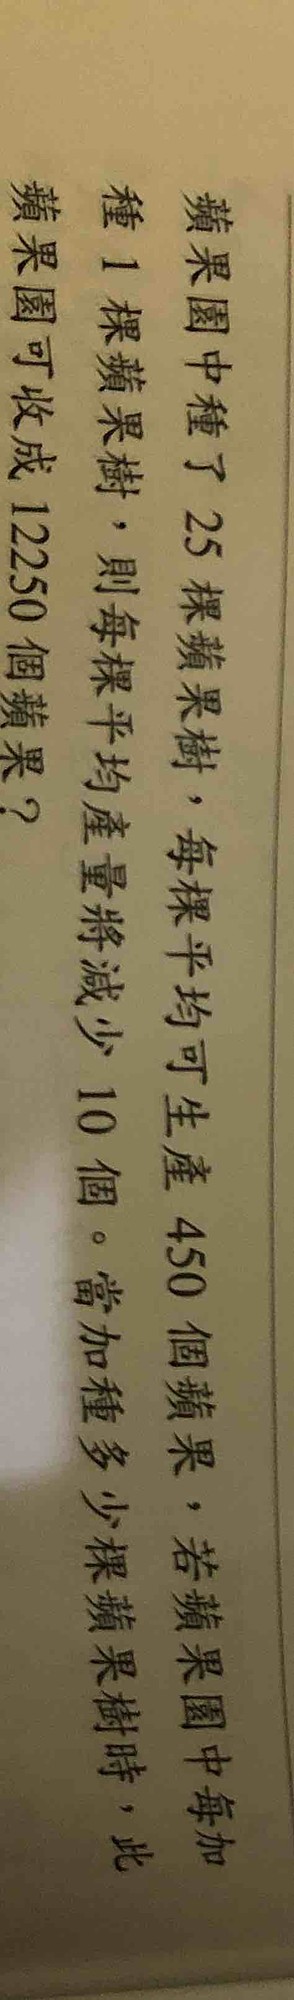 蘋果園中種了 25 棵蘋果樹，每棵平均可生產 450 個蘋果，若蘋果園中每加
種 1 棵蘋果樹，則每棵平均產量將減少 10 個。當加種多少棵蘋果樹時，此
蘋果園可收成 12250 個蘋果？